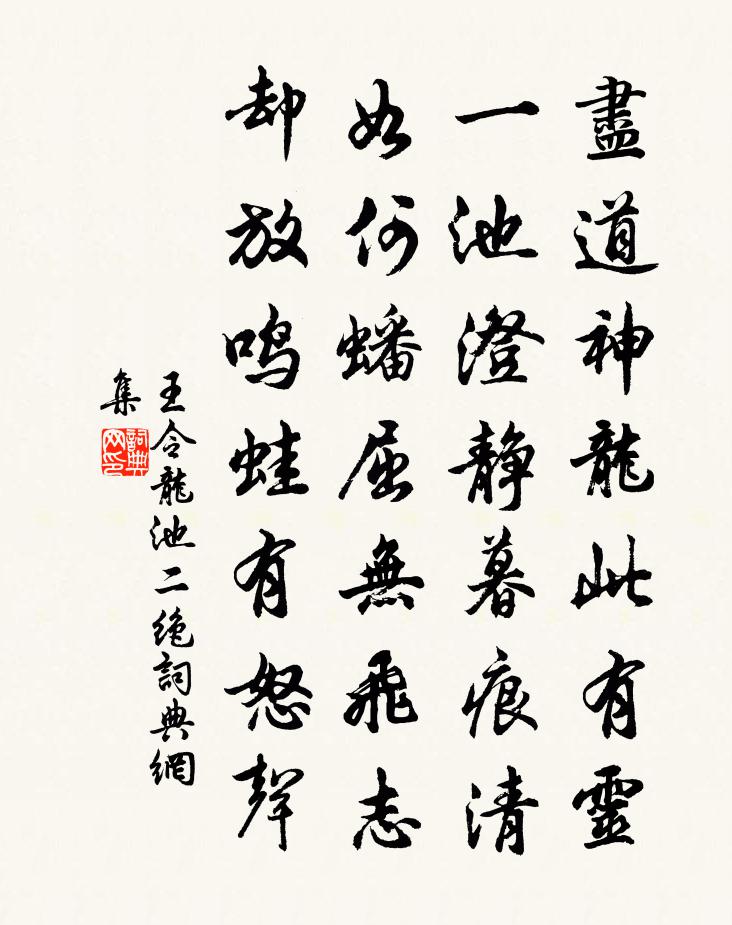 盡道神龍此有靈
一池澄靜暮痕清
如何蟠屈無飛志
却放鳴蛙有怒聲
王令龍池二絶詞典網
集
詞典網印